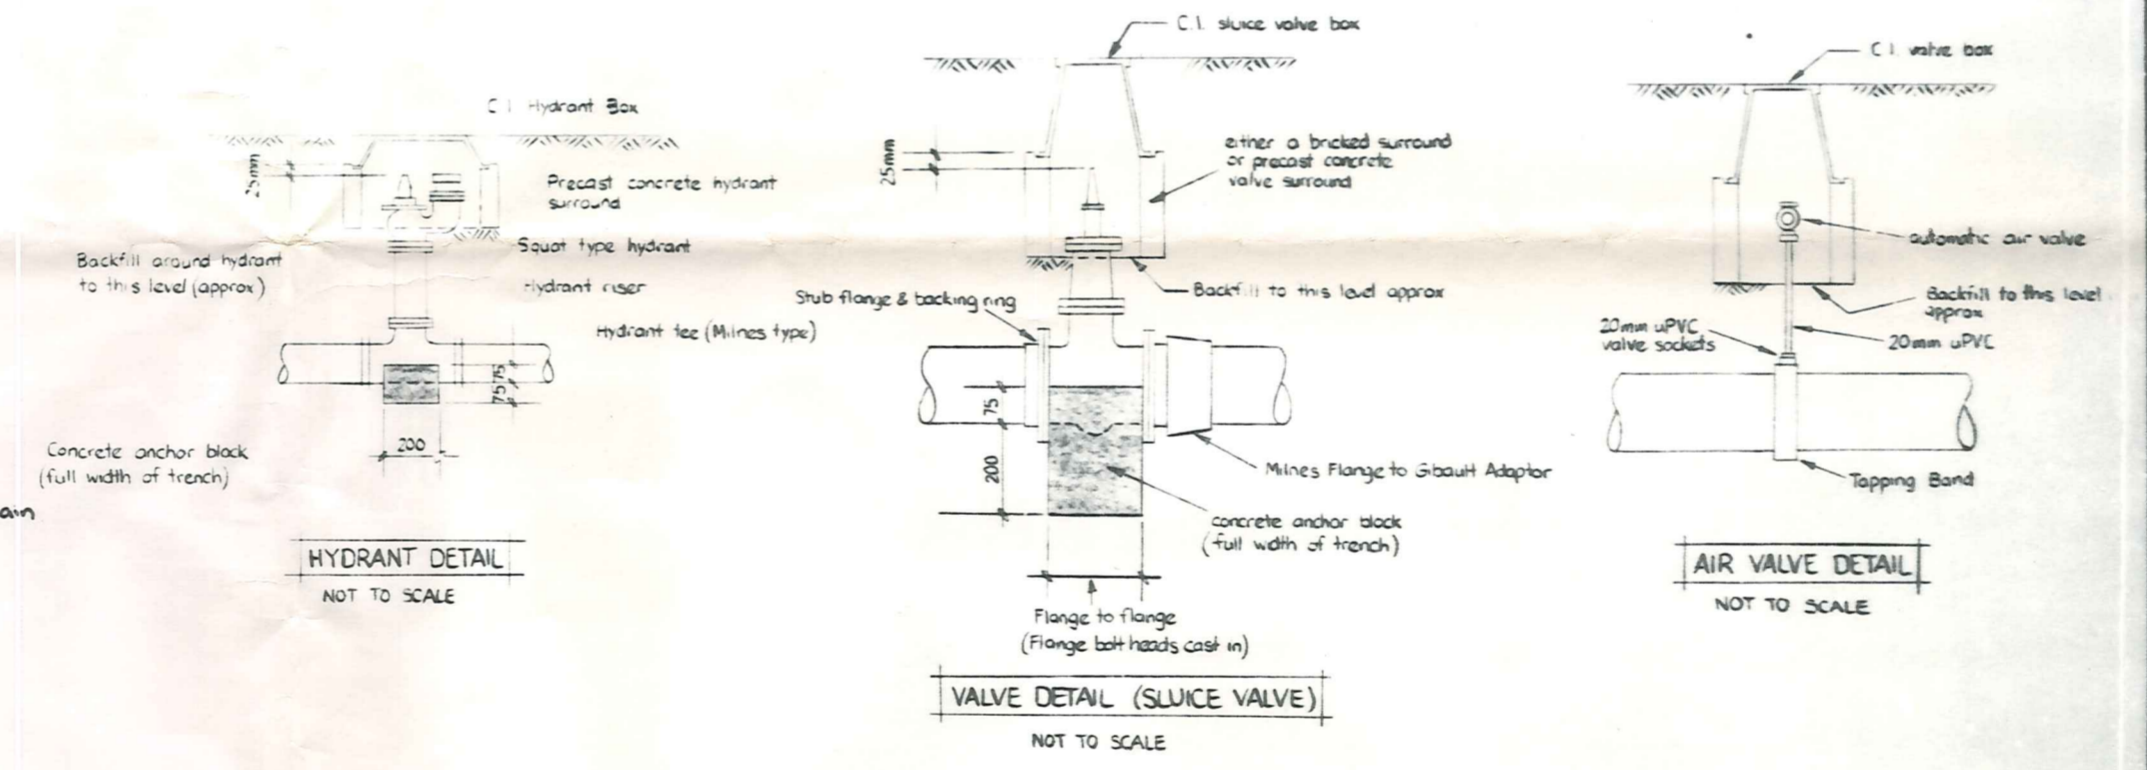 C.I. Hydrant Box
25mm
Precast concrete hydrant
surround
Squat type hydrant
Backfill around hydrant
to this level (approx)
Hydrant riser
Hydrant tee (Milnes type)
75
75
200
Concrete anchor block
(full width of trench)
HYDRANT DETAIL
NOT TO SCALE
C.I. sluice valve box
25mm
either a bricked surround
or precast concrete
valve surround
Backfill to this level approx
Stub flange & backing ring
75
200
Milnes Flange to Gibault Adaptor
concrete anchor block
(full width of trench)
Flange to flange
(Flange bolt heads cast in)
VALVE DETAIL (SLUICE VALVE)
NOT TO SCALE
C.I. valve box
automatic air valve
Backfill to this level
approx
20mm uPVC
valve sockets
20mm uPVC
Tapping Band
AIR VALVE DETAIL
NOT TO SCALE